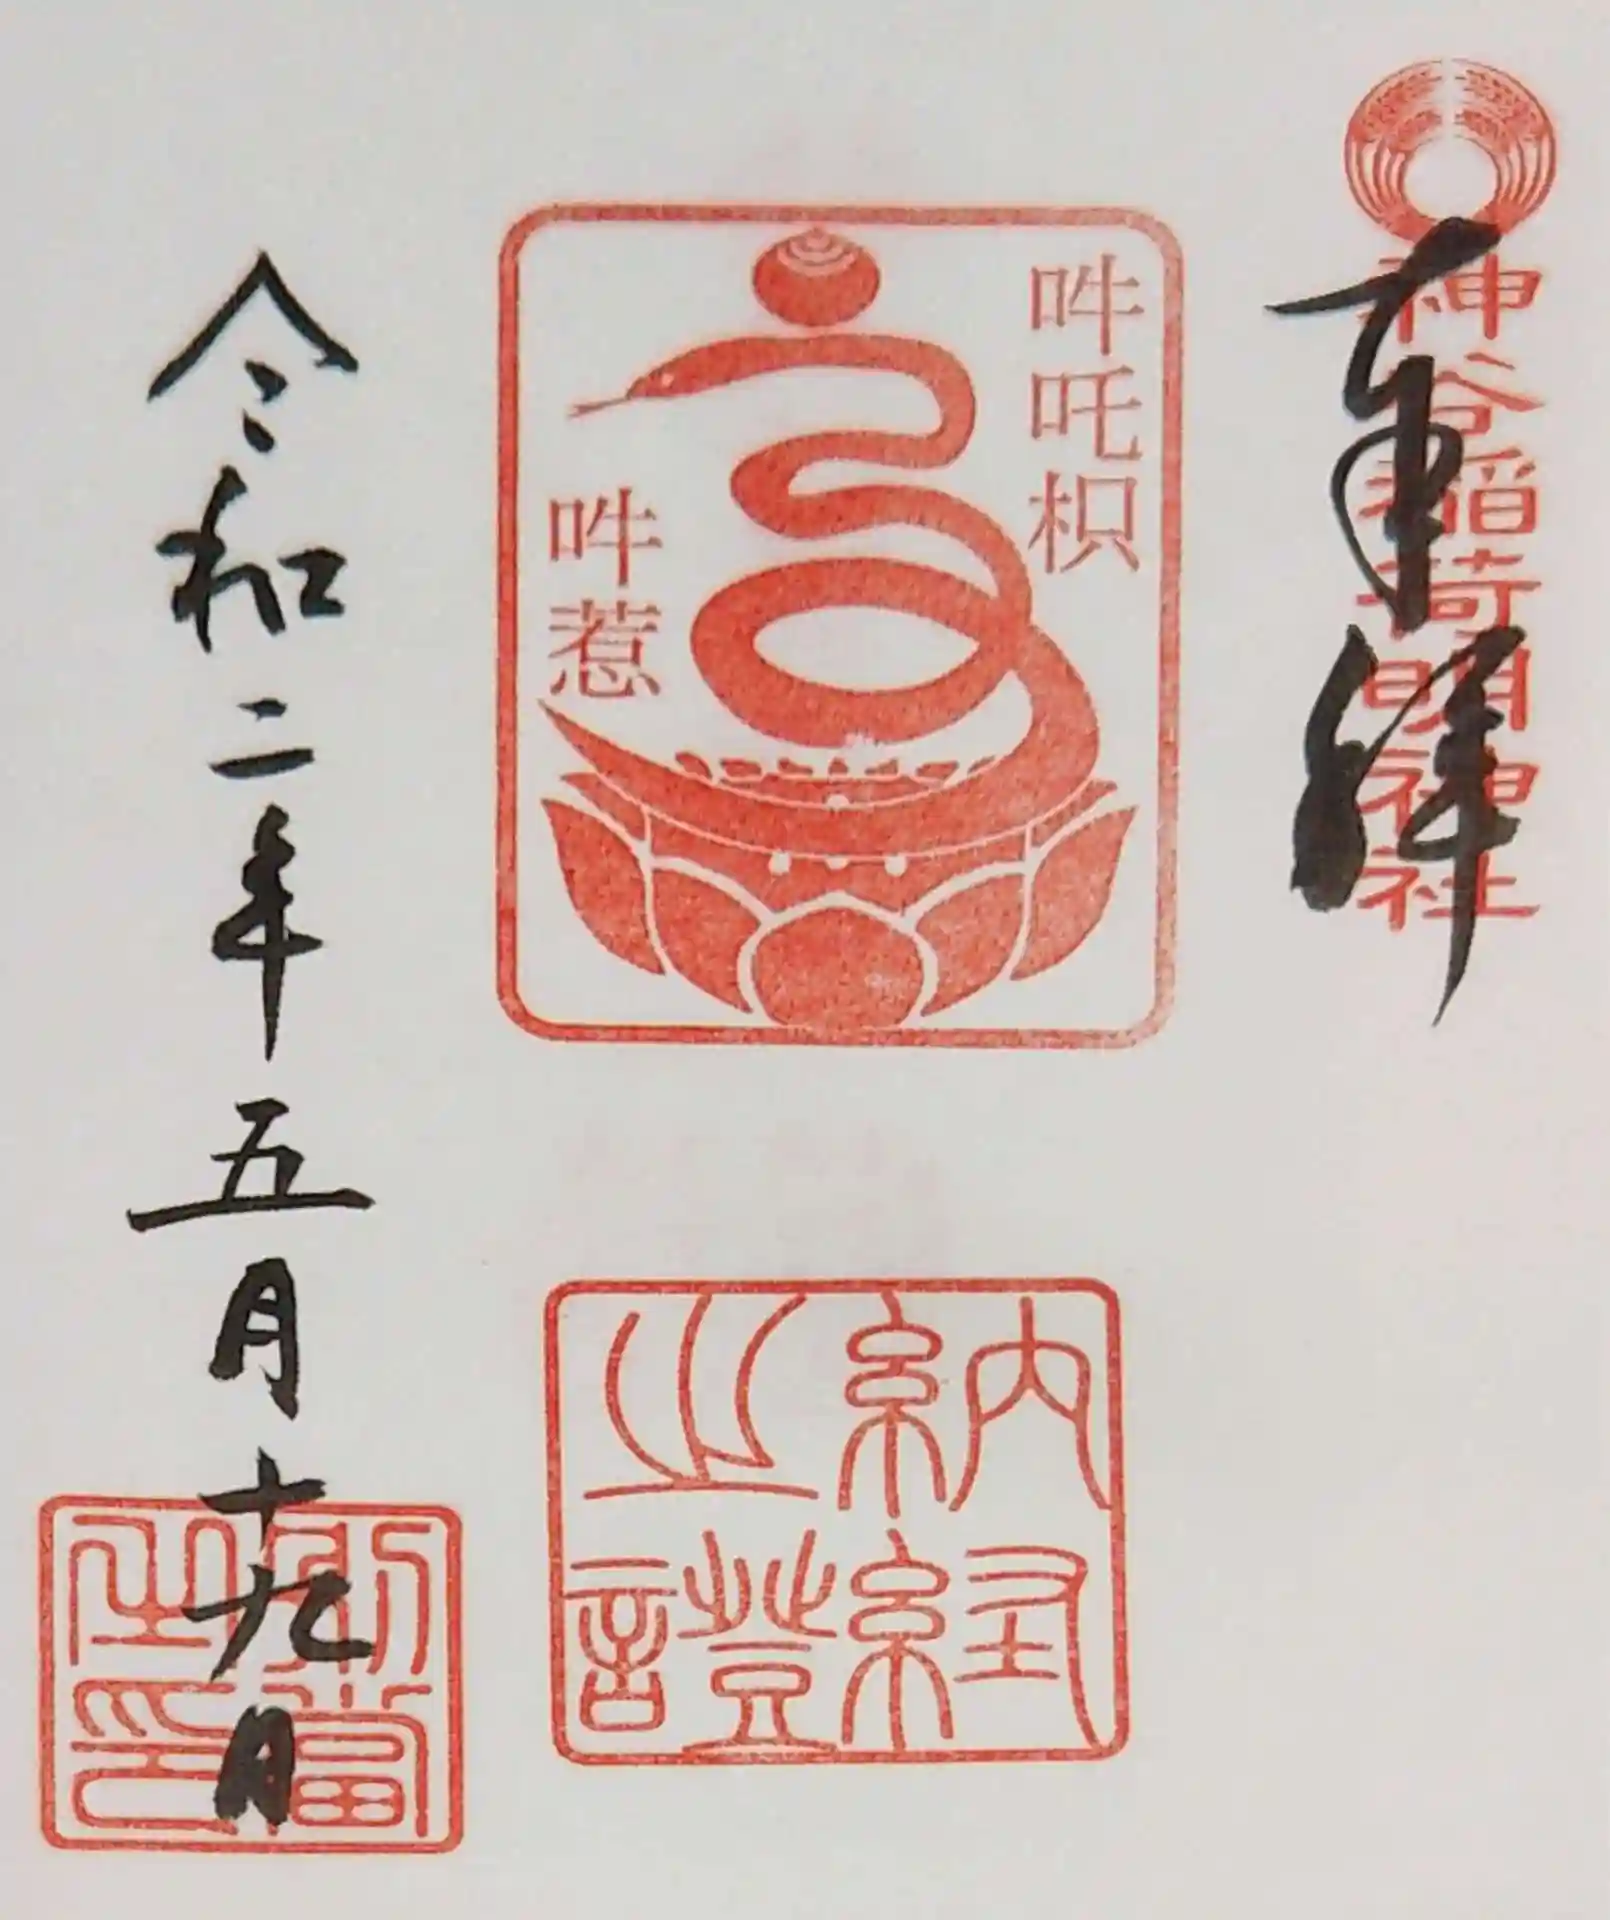 奉拝
神谷稲荷明神社
吽吒枳
吽惹
納経
之證
令和二年五月十九日
別當
之印